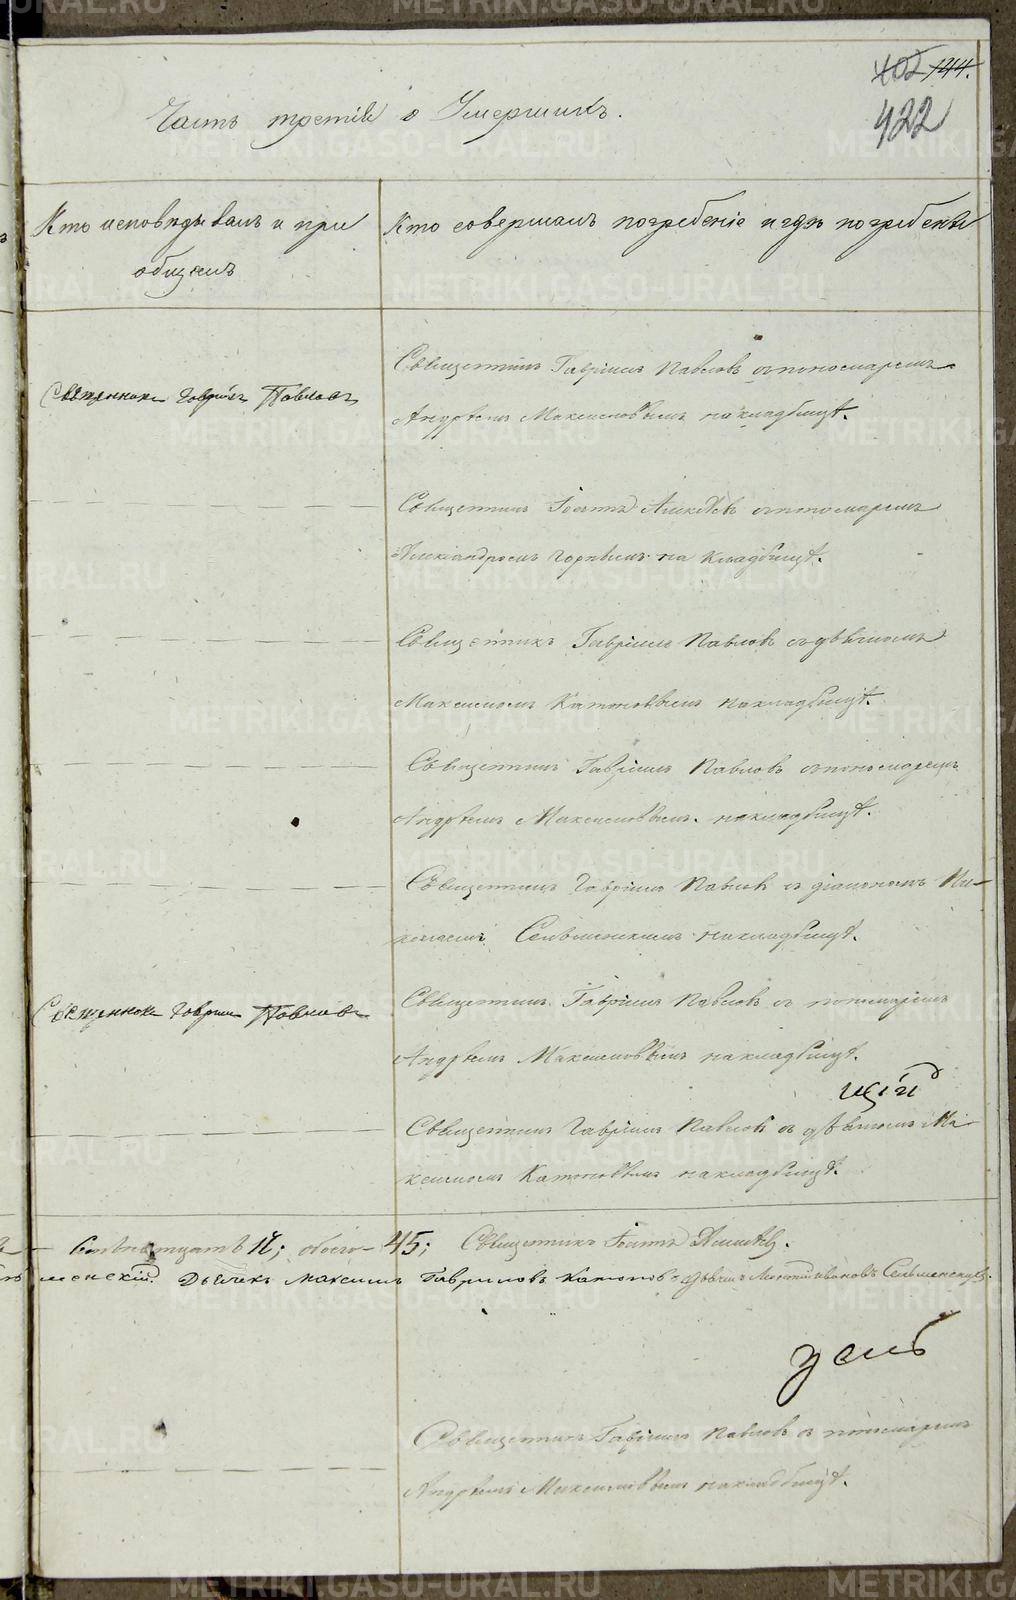 402 144.
422
Часть третія о Умершихъ.
Кто исповѣдывалъ и прі
общалъ
Кто совершалъ погребеніе и гдѣ погребены
Священникъ Гавріилъ Павловъ
Священникъ Гавріилъ Павловъ съ пономаремъ
Андреемъ Максимовымъ на кладбищѣ.
Священникъ Іоаннъ Алексѣевъ съ пономаремъ
Александромъ на кладбищѣ.
Священникъ Гавріилъ Павловъ съ дьячкомъ
Максимомъ Катоновымъ на кладбищѣ.
Священникъ Гавріилъ Павловъ съ пономаремъ
Андреемъ Максимовымъ на кладбищѣ.
Священникъ Гавріилъ Павловъ съ діакономъ Ни-
колаемъ Сельменскимъ на кладбищѣ.
Священникъ Гавріилъ Павловъ
Священникъ Гавріилъ Павловъ съ пономаремъ
Андреемъ Максимовымъ на кладбищѣ.
щій
Священникъ Гавріилъ Павловъ съ дьячкомъ Ма
ксимомъ Катоновымъ на кладбищѣ.
обоего 45; Священникъ Іоаннъ
менскій. Дьячекъ Максимъ Гавриловъ Катоновъ Дьячекъ Ивановъ Сельменскій.
Священникъ Гавріилъ Павловъ съ пономаремъ
Андреемъ Максимовымъ на кладбищѣ.
METRIKI.GASO-URAL.RU